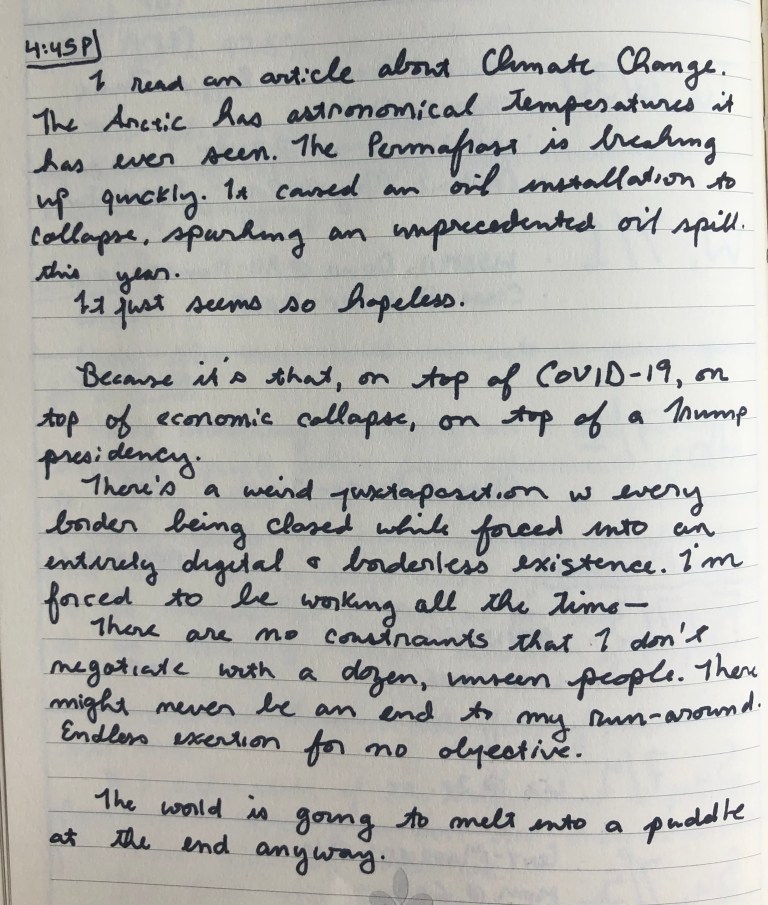 4:45P
I read an article about Climate Change.
The Arctic has astronomical temperatures it
has ever seen. The Permafrost is breaking
up quickly. It caused an oil installation to
collapse, sparking an unprecedented oil spill.
this year.
It just seems so hopeless.
Because it's that, on top of COVID-19, on
top of economic collapse, on top of a Trump
presidency.
There's a weird juxtaposition w every
border being closed while forced into an
entirely digital & borderless existence. I'm
forced to be working all the time—
There are no constraints that I don't
negotiate with a dozen, unseen people. There
might never be an end to my run-around.
Endless exertion for no objective.
The world is going to melt into a puddle
at the end anyway.